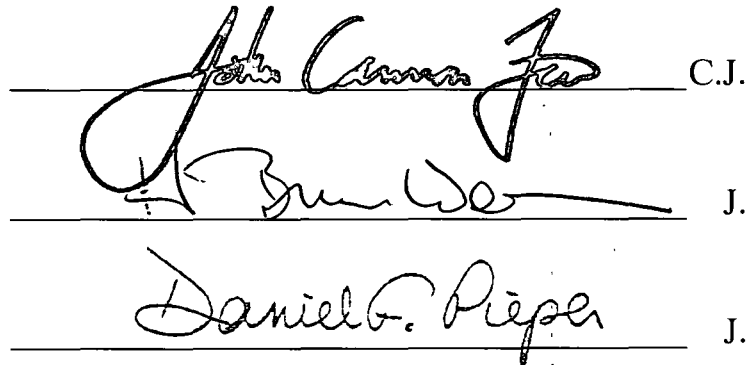 John Cannon Few C.J.
J.
Daniel F. Pieper J.